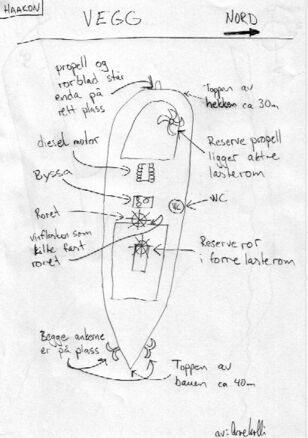 HAAKON
VEGG
NORD
propell og
rorblad står
enda på
rett plass
Toppen av
hekken ca 30m
diesel motor
Reserve propell
ligger aktre
lasterom
Byssa
WC
WC
Roret
vinflaskon som
kilte fast
roret
Reserve ror
i forre lasterom
Begge ankerne
er på plass
Toppen av
bauen ca 40m
av: